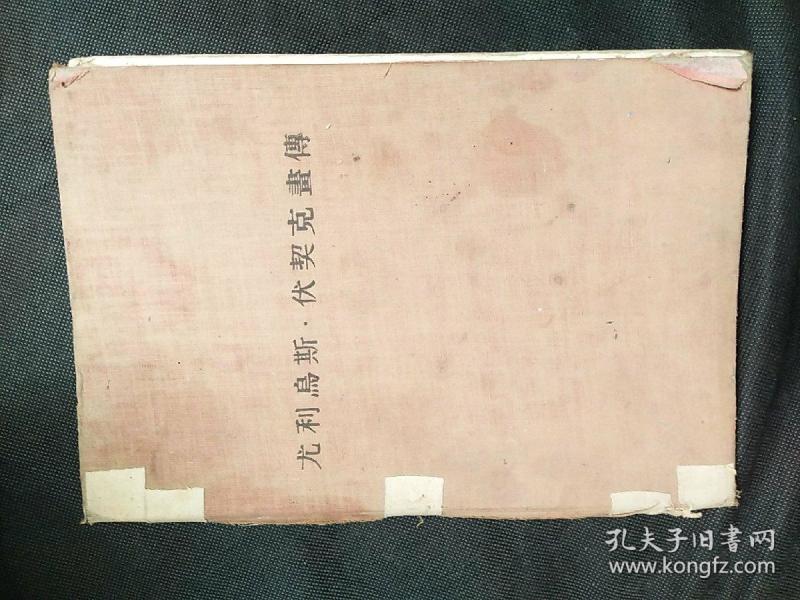 尤利烏斯·伏契克畫傳
孔夫子旧書网
www.kongfz.com